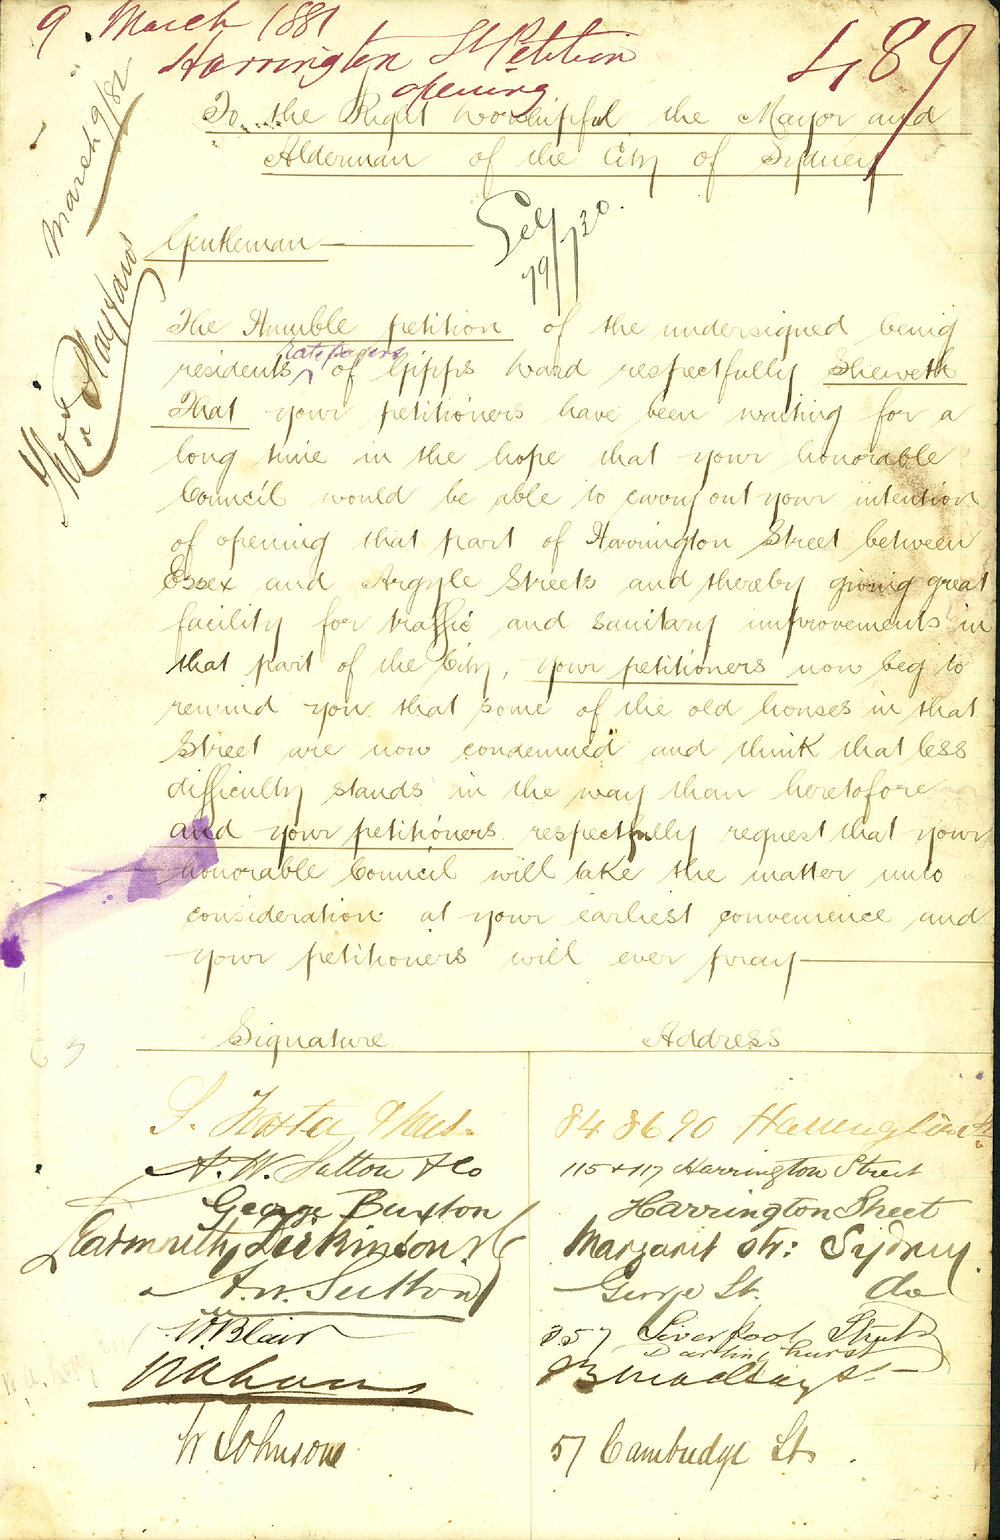 9 March 1881
Harrington St Petition
opening
489
March 9/81
To the Right Worshipful the Mayor and
Alderman of the City of Sydney
79/720.
Gentleman
The Humble petition of the undersigned being
ratepayers
residents of Gipps Ward respectfully Sheweth
That your petitioners have been waiting for a
long time in the hope that your honorable
Council would be able to carry out your intention
of opening that part of Harrington Street between
Essex and Argyle Streets and thereby giving great
facility for traffic and sanitary improvements in
that part of the City, your petitioners now beg to
remind you that some of the old houses in that
Street are now condemned and think that less
difficulty stands in the way than heretofore
and your petitioners respectfully request that your
honorable Council will take the matter into
consideration at your earliest convenience and
your petitioners will ever pray
Signature Address
84 86 90 Harrington St
A. W. Sutton & Co 115 & 117 Harrington Street
George Buxton Harrington Street
Learmouth Dickinson & Co Margaret Str: Sydney
A. W. Sutton George St. do
W Blair 357 Liverpool Street
Darlinghurst
W Johnson 57 Cambridge St.